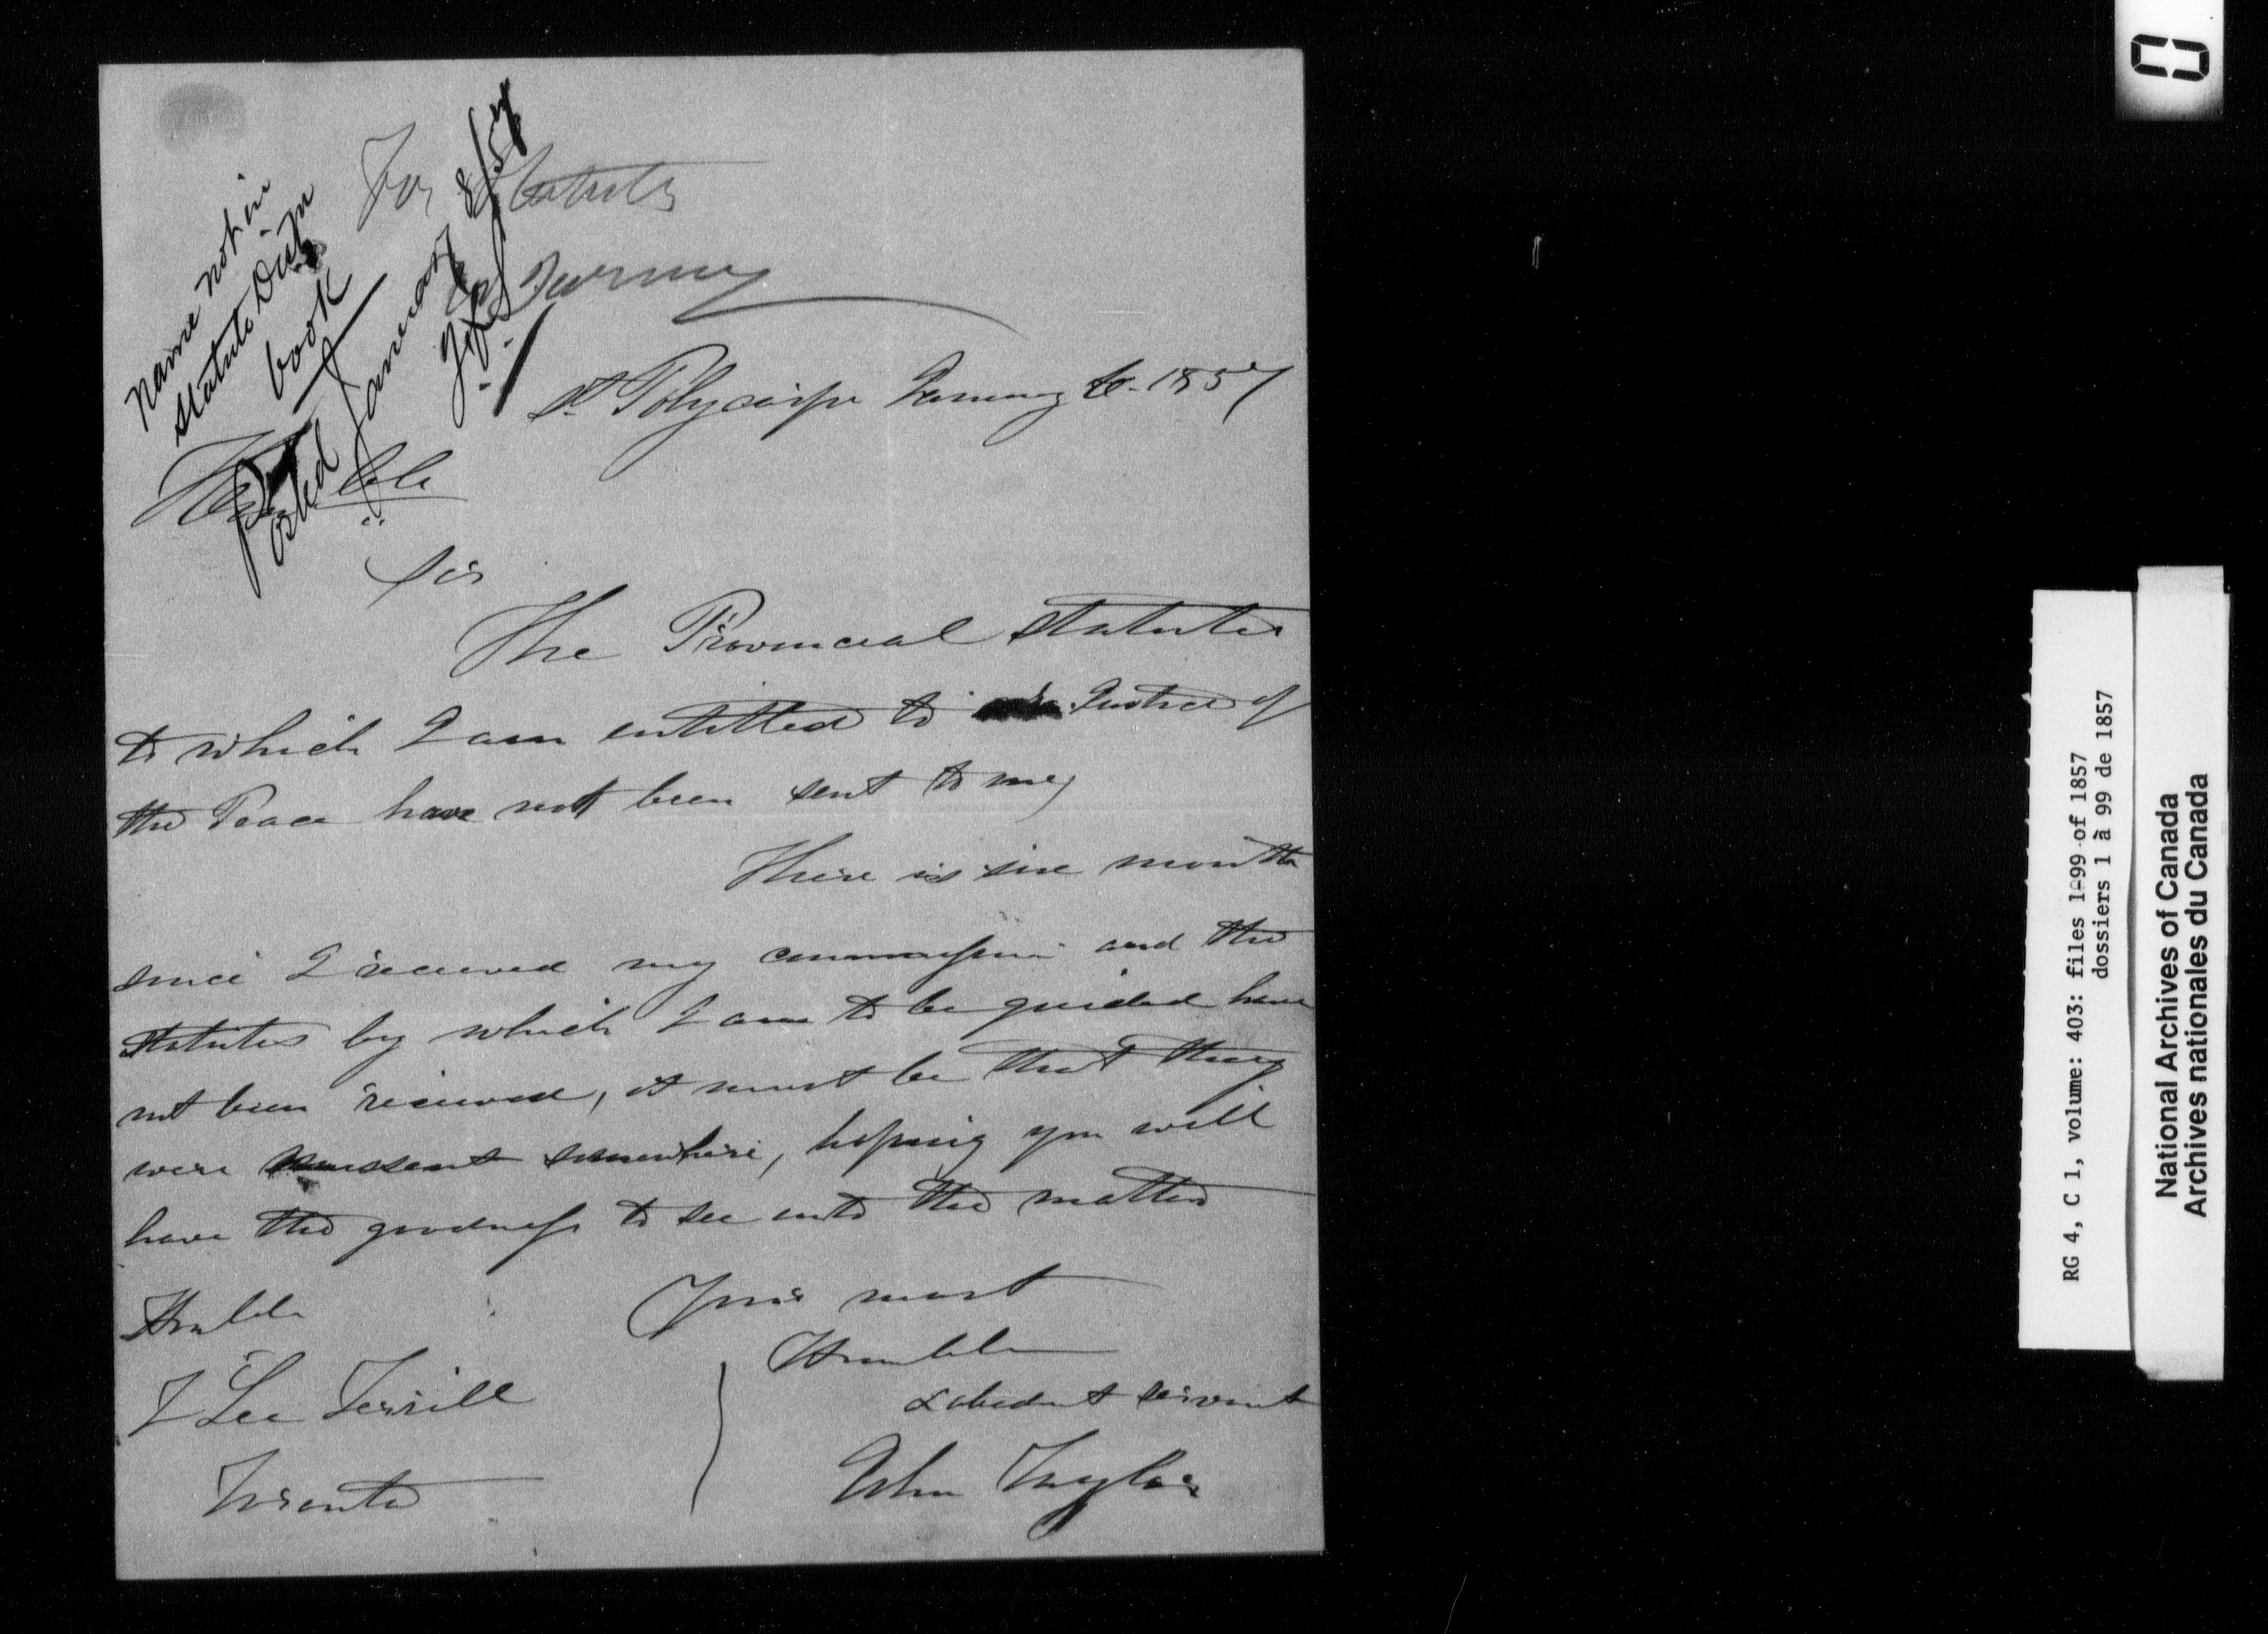 For Statutes
name not in
Statute Distn
book
Posted January 8/57
St Polycarpe January 6 - 1857
Honble
Sir
The Provincial Statutes
to which I am entitled to as Justice of
the Peace have not been sent to me,
There is six months
since I received my commission and the
statutes by which I am to be guided have
not been received, it must be that they
were missent somewhere, hoping you will
have the goodness to see into the matter
Your most
Humble
& obedient servant
John Taylor
Honble
T Lee Terrill
Toronto
RG 4, C 1, volume: 403: files 1-99 of 1857
dossiers 1 à 99 de 1857
National Archives of Canada
Archives nationales du Canada